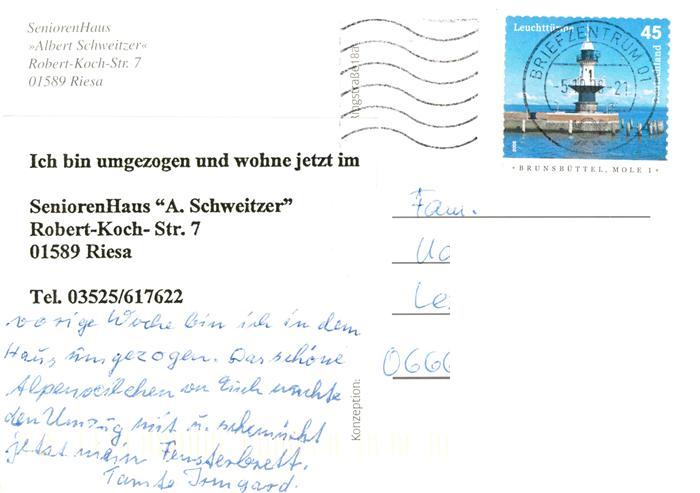 SeniorenHaus
»Albert Schweitzer«
Robert-Koch-Str. 7
01589 Riesa
Leuchttürme
45
Deutschland
BRIEFZENTRUM 01
2005
BRUNSBÜTTEL, MOLE 1
Ich bin umgezogen und wohne jetzt im
SeniorenHaus “A. Schweitzer”
Robert-Koch- Str. 7
01589 Riesa
Tel. 03525/617622
vorige Woche bin ich in dem
Haus umgezogen. Das schöne
Alpenveilchen von Euch machte
den Umzug mit u. schmückt
jetzt mein Fensterbrett.
Tante Irmgard.
Fam.
Konzeption: